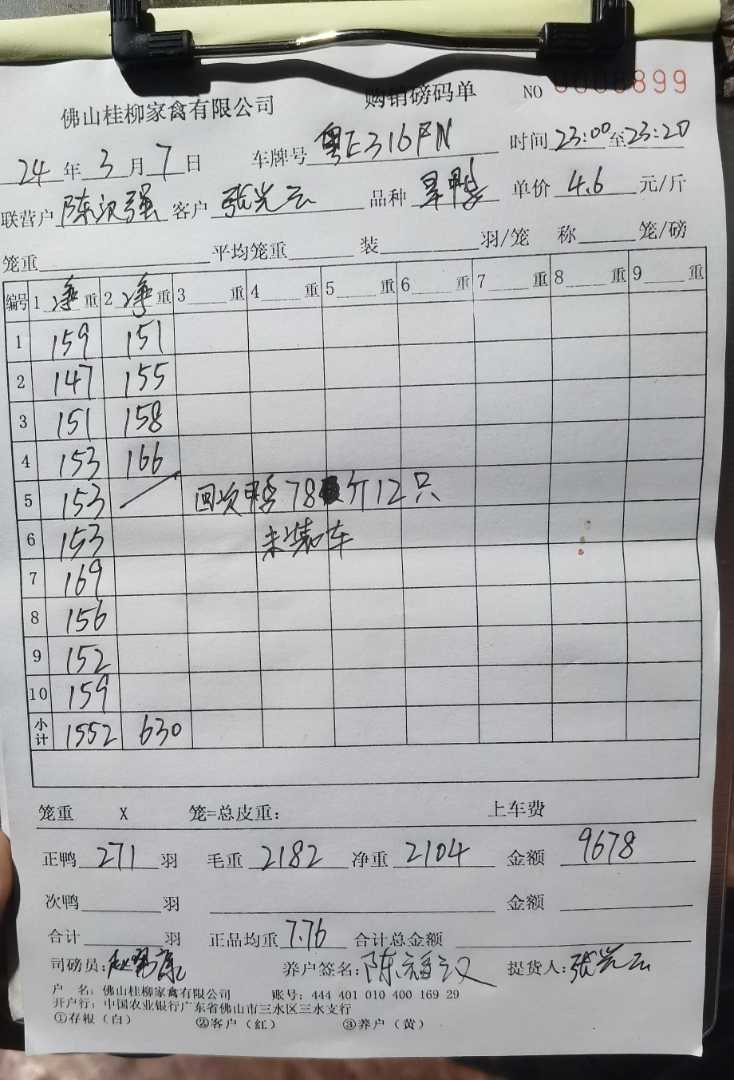 佛山桂柳家禽有限公司 购销磅码单 NO 899
24年3月7日 车牌号 粤E316FN 时间23:00至23:20
联营户 陈汉强 客户 张光云 品种 旱鸭 单价 4.6 元/斤
笼重 平均笼重 装 羽/笼 称 笼/磅
编号 1 净重 2 净重 3 重 4 重 5 重 6 重 7 重 8 重 9 重
1 159 151
2 147 155
3 151 158
4 153 166
5 153 回次鸭78斤12只
6 153 未装车
7 169
8 156
9 152
10 159
小计 1552 630
笼重 X 笼=总皮重: 上车费
正鸭 271 羽 毛重 2182 净重 2104 金额 9678
次鸭 羽 金额
合计 羽 正品均重 7.76 合计总金额
司磅员: 养户签名: 陈汉 提货人: 张光云
户 名: 佛山桂柳家禽有限公司 账号: 444 401 010 400 169 29
开户行: 中国农业银行广东省佛山市三水区三水支行
①存根(白) ②客户(红) ③养户(黄)